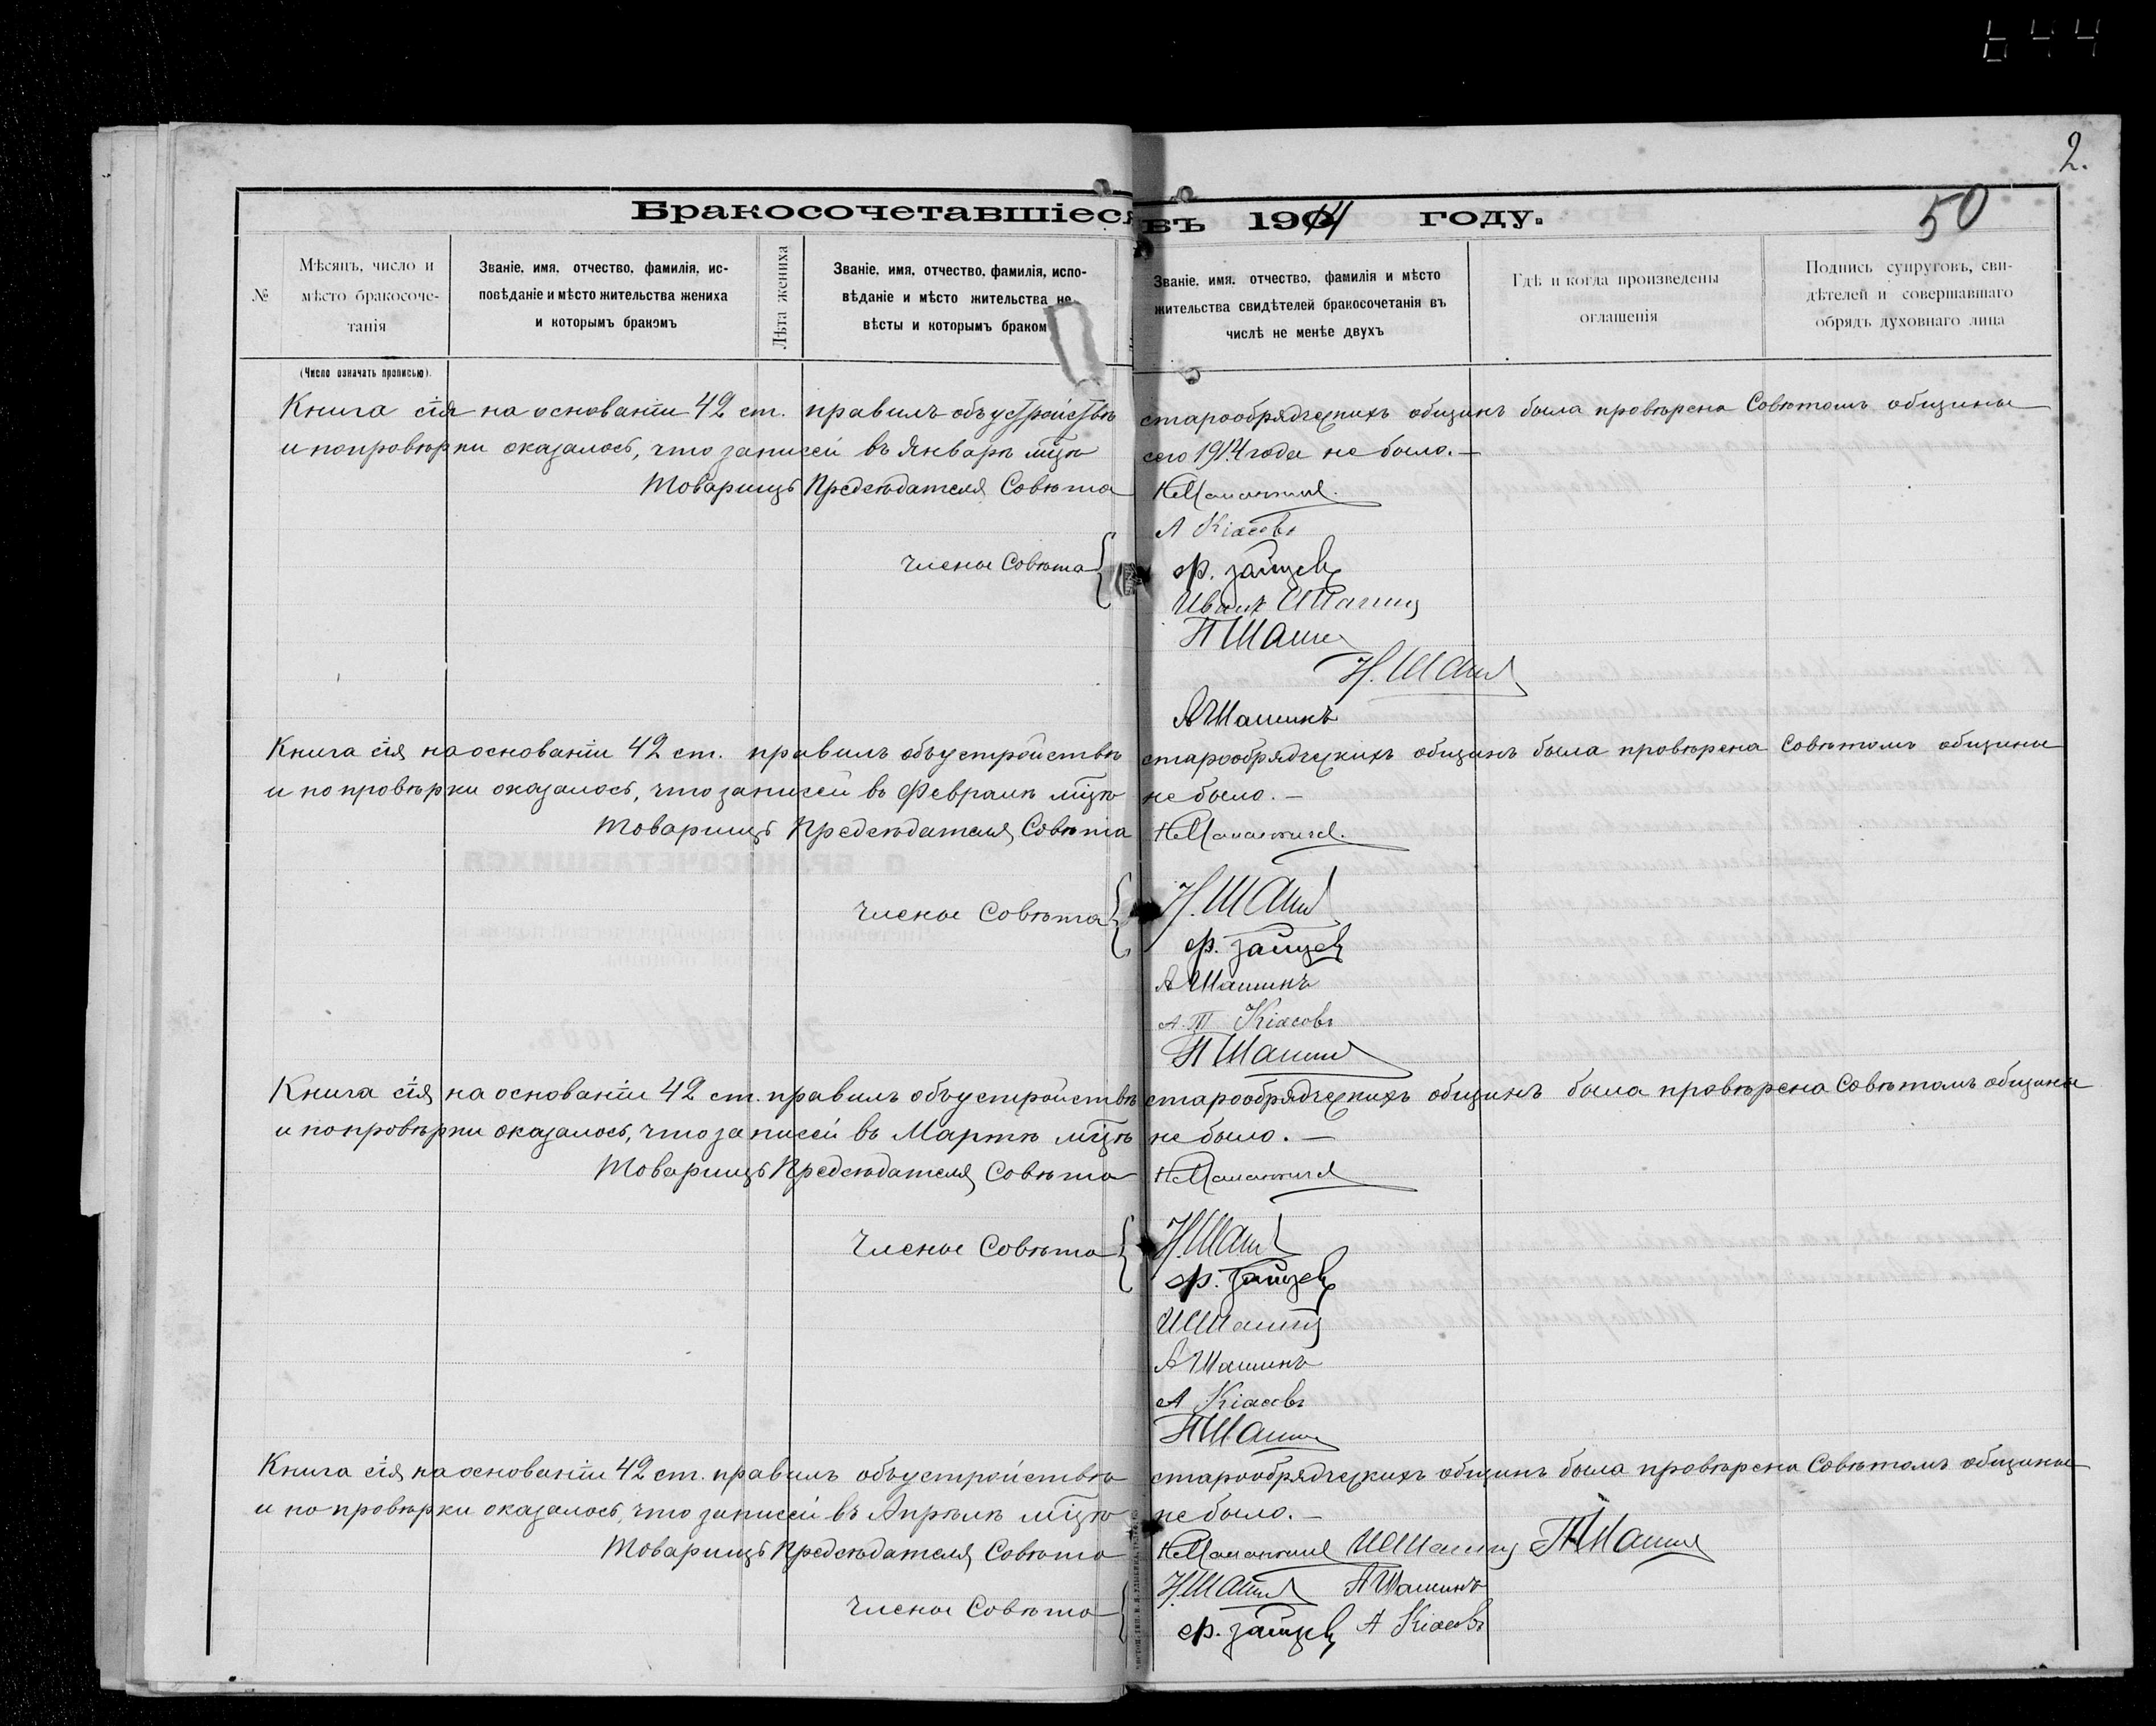 644
2.
50
Бракосочетавшіеся въ 1914 году.
№
Мѣсяцъ, число и мѣсто бракосочетанія
Званіе, имя, отчество, фамилія, исповѣданіе и мѣсто жительства жениха и которымъ бракомъ
Лѣта жениха
Званіе, имя, отчество, фамилія, исповѣданіе и мѣсто жительства невѣсты и которымъ бракомъ
Званіе, имя, отчество, фамилія и мѣсто жительства свидѣтелей бракосочетанія въ числѣ не менѣе двухъ
Гдѣ и когда произведены оглашенія
Подпись супруговъ, свидѣтелей и совершавшаго обрядъ духовнаго лица
(Число означать прописью).
Книга сія на основаніи 42 ст. правилъ объ устройствѣ старообрядческихъ общинъ была провѣрена Совѣтомъ общины
и по провѣрки оказалось, что записей въ Январѣ мѣцѣ сего 1914 года не было.—
Товарищъ Предсѣдателя Совѣта
А Кіасовъ
Члены Совѣта
Ф. Зайцевъ
Иванъ Шашинъ
П Шашин
Н. Шашин
А Шашинъ
Книга сія на основаніи 42 ст. правилъ объ устройствѣ старообрядческихъ общинъ была провѣрена Совѣтомъ общины
и по провѣрки оказалось, что записей въ Февралѣ мѣцѣ не было.—
Товарищъ Предсѣдателя Совѣта
Н. Шашин
Члены Совѣта
Ф. Зайцевъ
А Шашинъ
А. Т Кіасовъ
П Шашин
Книга сія на основаніи 42 ст. правилъ объ устройствѣ старообрядческихъ общинъ была провѣрена Совѣтомъ общины
и по провѣрки оказалось, что записей въ Мартѣ мѣцѣ не было.—
Товарищъ Предсѣдателя Совѣта
Члены Совѣта Н. Шашин
Ф. Зайцевъ
И Шашинъ
А Шашинъ
А Кіасовъ
П Шашин
Книга сія на основаніи 42 ст. правилъ объ устройствѣ старообрядческихъ общинъ была провѣрена Совѣтомъ общины
и по провѣрки оказалось, что записей въ Апрѣлѣ мѣцѣ не было.—
Товарищъ Предсѣдателя Совѣта И Шашинъ П Шашин
Н. Шашин А Шашинъ
Члены Совѣта
Ф. Зайцевъ А Кіасовъ